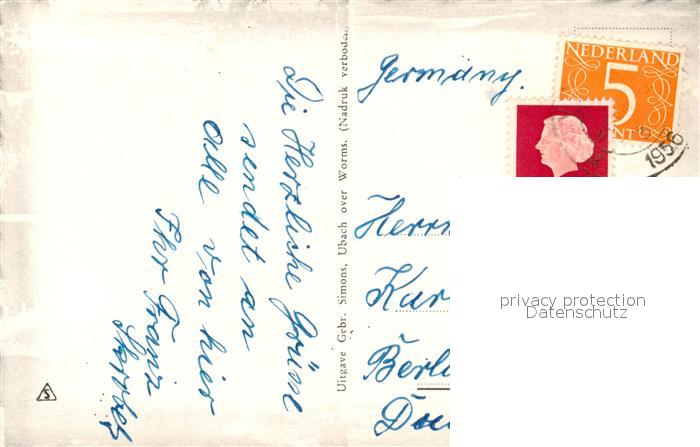 Die Herzliche Grüße
sendet an
alle von hier
Ihr Franz
Uitgave Gebr. Simons, Ubach over Worms. (Nadruk verboden)
Germany.
NEDERLAND
5
CENT
1956
Herrn
Kar
Berl
privacy protection
Datenschutz
S